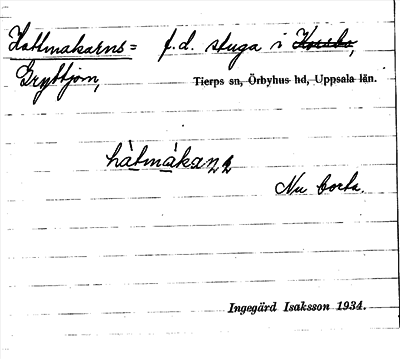 Hattmakarns = f.d. stuga i Korsbo,
Gryttjom,
Tierps sn, Örbyhus hd, Uppsala län.
hàtmàkan
Nu borta.
Ingegärd Isaksson 1934.